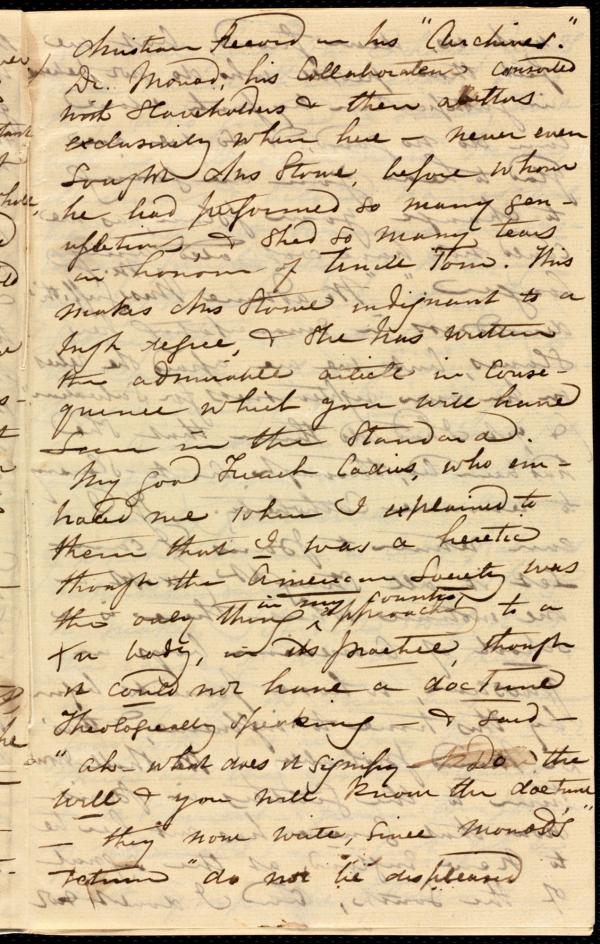 Christian Record in his "Archives."
Dr. Monod, his Collaborateur consorted
with Slaveholders & their abettors
exclusively when here – never even
sought Mrs Stowe, before whom
he had performed so many gen-
uflections & shed so many tears
in honour of Uncle Tom. This
makes Mrs Stowe indignant to a
high degree, & she has written
the admirable article in conse-
quence which you will have
seen in the Standard.
My good French Ladies, who em-
braced me when I explained to
them that I was a heretic
though the American Society was
the only thing in my country approaching to a
Xn body, in its practice, though
it could not have a doctrine
Theologically speaking – & said –
"ah what does it signify do the
will & you will know the doctrine"
– they now write, since Monod's
return "do not be displeased